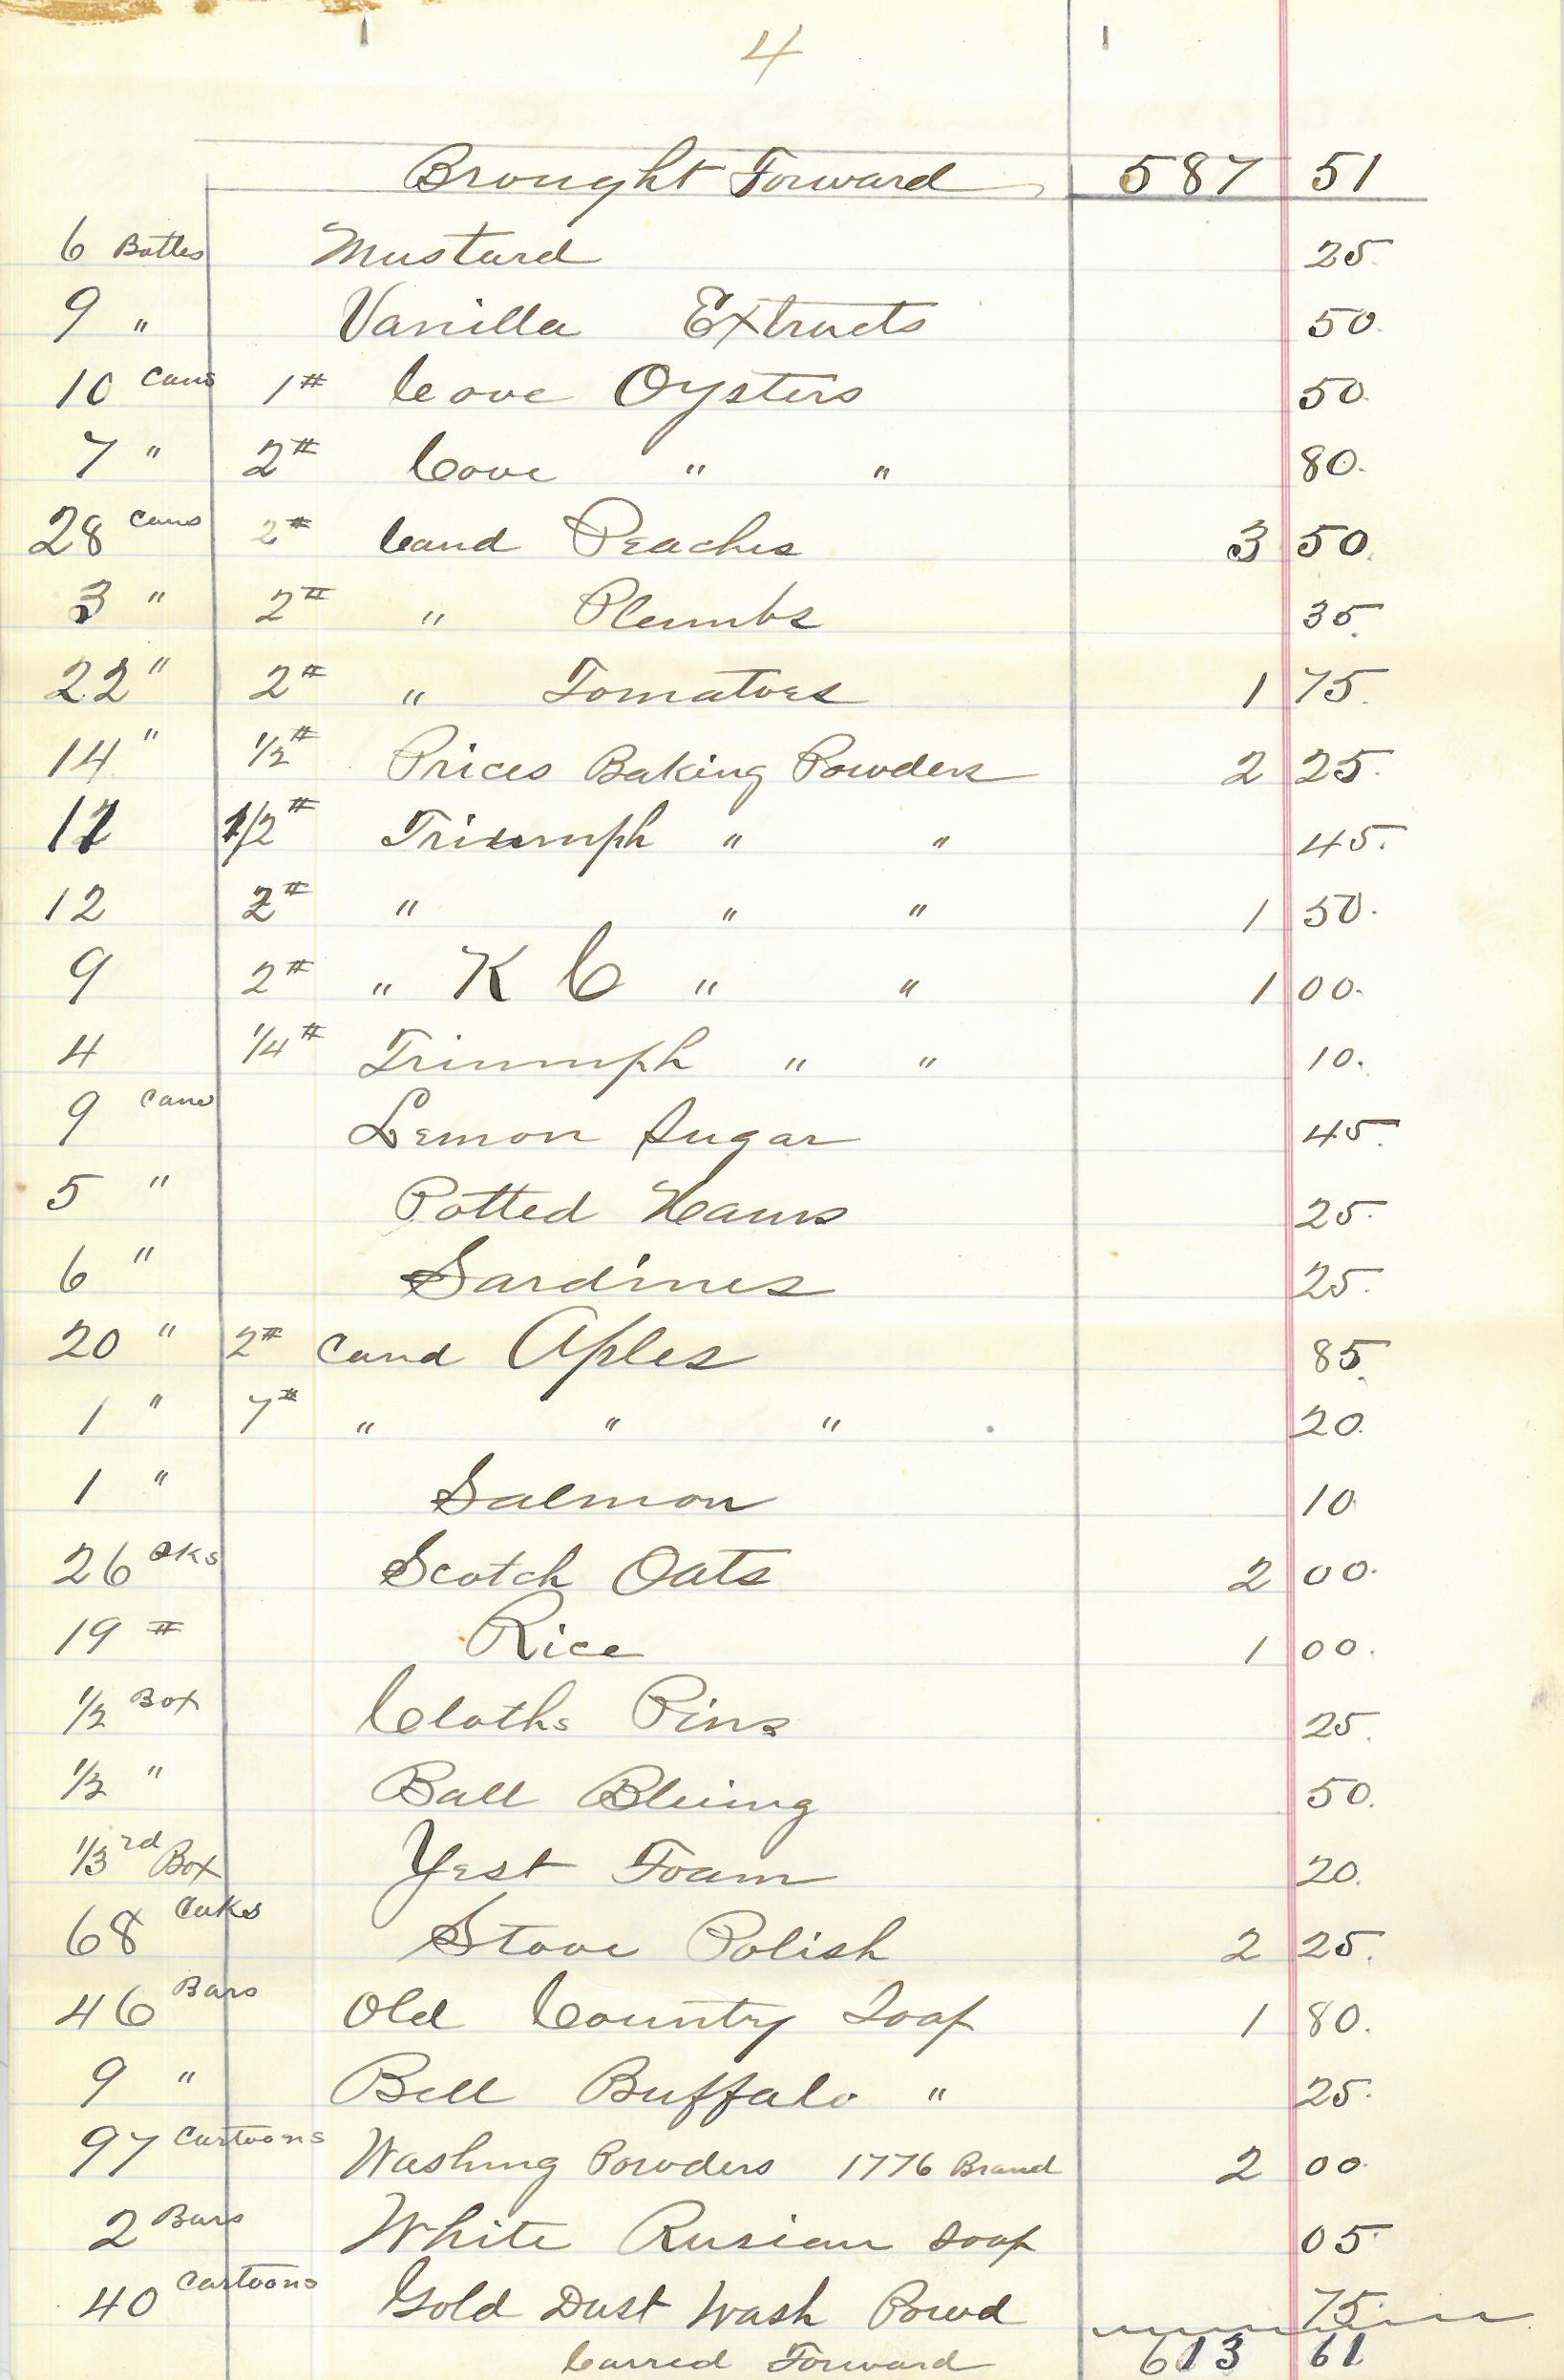 4
Brought Forward 587 51
6 Bottles Mustard 25.
9 " Vanilla Extracts 50.
10 Cans 1# Cove Oysters 50.
7 " 2# Cove " " 80.
28 Cans 2# Cand Peaches 3 50.
3 " 2# " Plumbs 35.
22 " 2# " Tomatoes 1 75.
14 " 1/2# Prices Baking Powders 2 25.
11 1/2# Triumph " " 45.
12 2# " " " 1 50.
9 2# " K C " " 1 00.
4 1/4# Triumph " " 10.
9 Cans Lemon Sugar 45.
5 " Potted Hams 25.
6 " Sardines 25.
20 " 2# Cand Aples 85.
1 " 7# " " " 20.
1 " Salmon 10
26 PKs Scotch Oats 2 00.
19 # Rice 1 00.
1/2 Box Cloths Pins 25.
1/2 " Ball Bluing 50.
1/3rd Box Yest Foam 20.
68 Caks Stove Polish 2 25.
46 Bars Old Country Soap 1 80.
9 " Bell Buffalo " 25.
97 Cartoons Washing Powders 1776 Brand 2 00.
2 Bars White Rusian Soap 05.
40 Cartoons Gold Dust Wash Powd 75.
Carred Forward 613 61